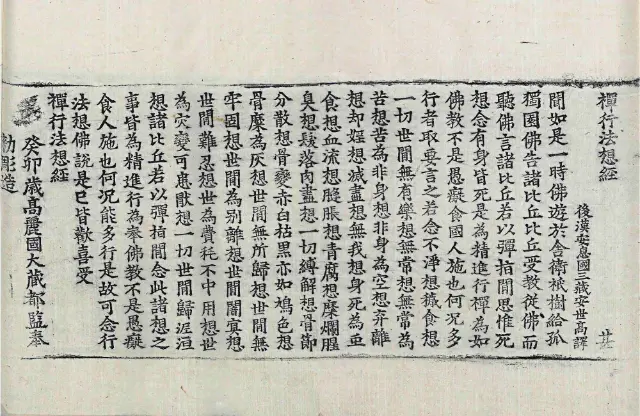 禪行法想經
後漢安息國三藏安世高譯
聞如是一時佛遊於舍衛祇樹給孤
獨園佛告諸比丘比丘受教從佛而
聽佛言諸比丘若以彈指間思惟死
想念有身皆死是為精進行禪為如
佛教不是愚癡食國人施也何況多
行者取要言之若念不淨想穢食想
一切世間無有樂想無常想無常為
苦想苦為非身想非身為空想棄離
想却婬想滅盡想無我想身死為蟲
食想血流想膖脹想青腐想糜爛腥
臭想髮落肉盡想一切縛解想骨節
分散想骨變赤白枯黑亦如鳩色想
骨糜為灰想世間無所歸想世間無
牢固想世間為別離想世間闇冥想
世間難忍想世為費耗不中用想世
為灾變可患猒想一切世間歸泥洹
想諸比丘若以彈指間念此諸想之
事皆為精進行為奉佛教不是愚癡
食人施也何況能多行是故可念行
法想佛說是已皆歡喜受
禪行法想經
癸卯歲高麗國大藏都監奉
勅彫造